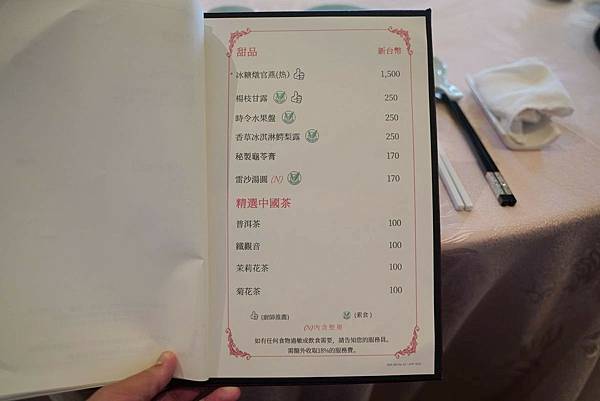 甜品 新台幣
冰糖燉官燕(热) 1,500
楊枝甘露 250
時令水果盤 250
香草冰淇淋鰐梨露 250
秘製龜苓膏 170
雷沙湯圓 (N) 170
精選中國茶
普洱茶 100
鐵觀音 100
茉莉花茶 100
菊花茶 100
(廚師推薦) (素食)
(N)內含堅果
如有任何食物過敏或飲食需要，請告知您的服務員。
需額外收取18%的服務費。